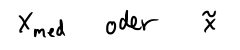 x_med oder x̃